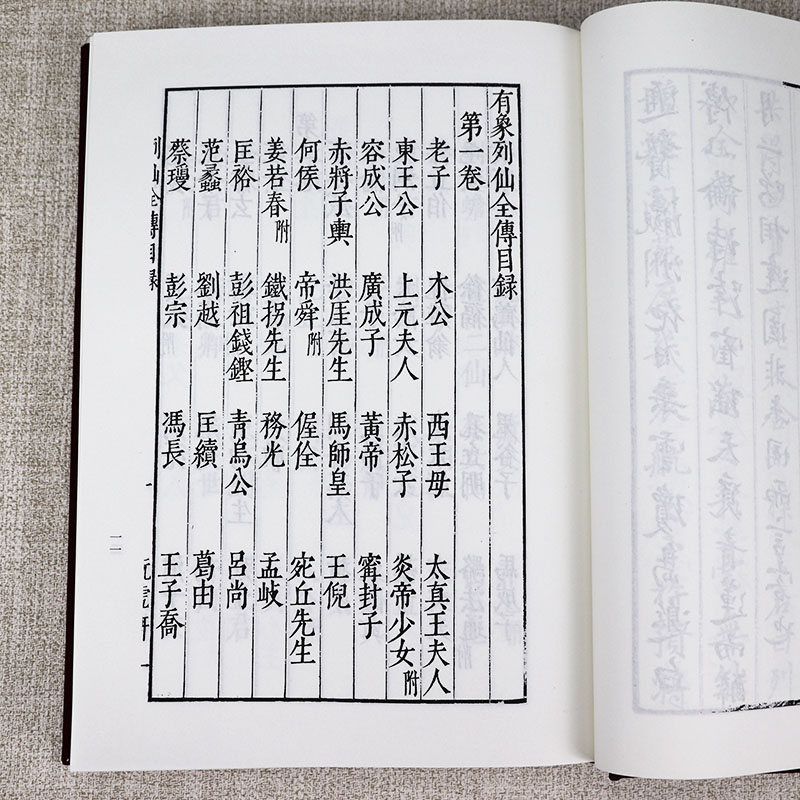 有象列仙全傳目録
第一卷
老子 木公 西王母 太真王夫人
東王公 上元夫人 赤松子 炎帝少女附
容成公 廣成子 黃帝 甯封子
赤將子輿 洪厓先生 馬師皇 王倪
何侯 帝舜附 偓佺 宛丘先生
姜若春附 鐵拐先生 務光 孟岐
匡裕 彭祖錢鏗 青烏公 呂尚
范蠡 劉越 匡續 葛由
蔡瓊 彭宗 馮長 王子喬
列仙全傳目録 一
一一